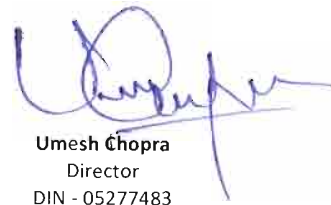 Umesh Chopra
Director
DIN - 05277483